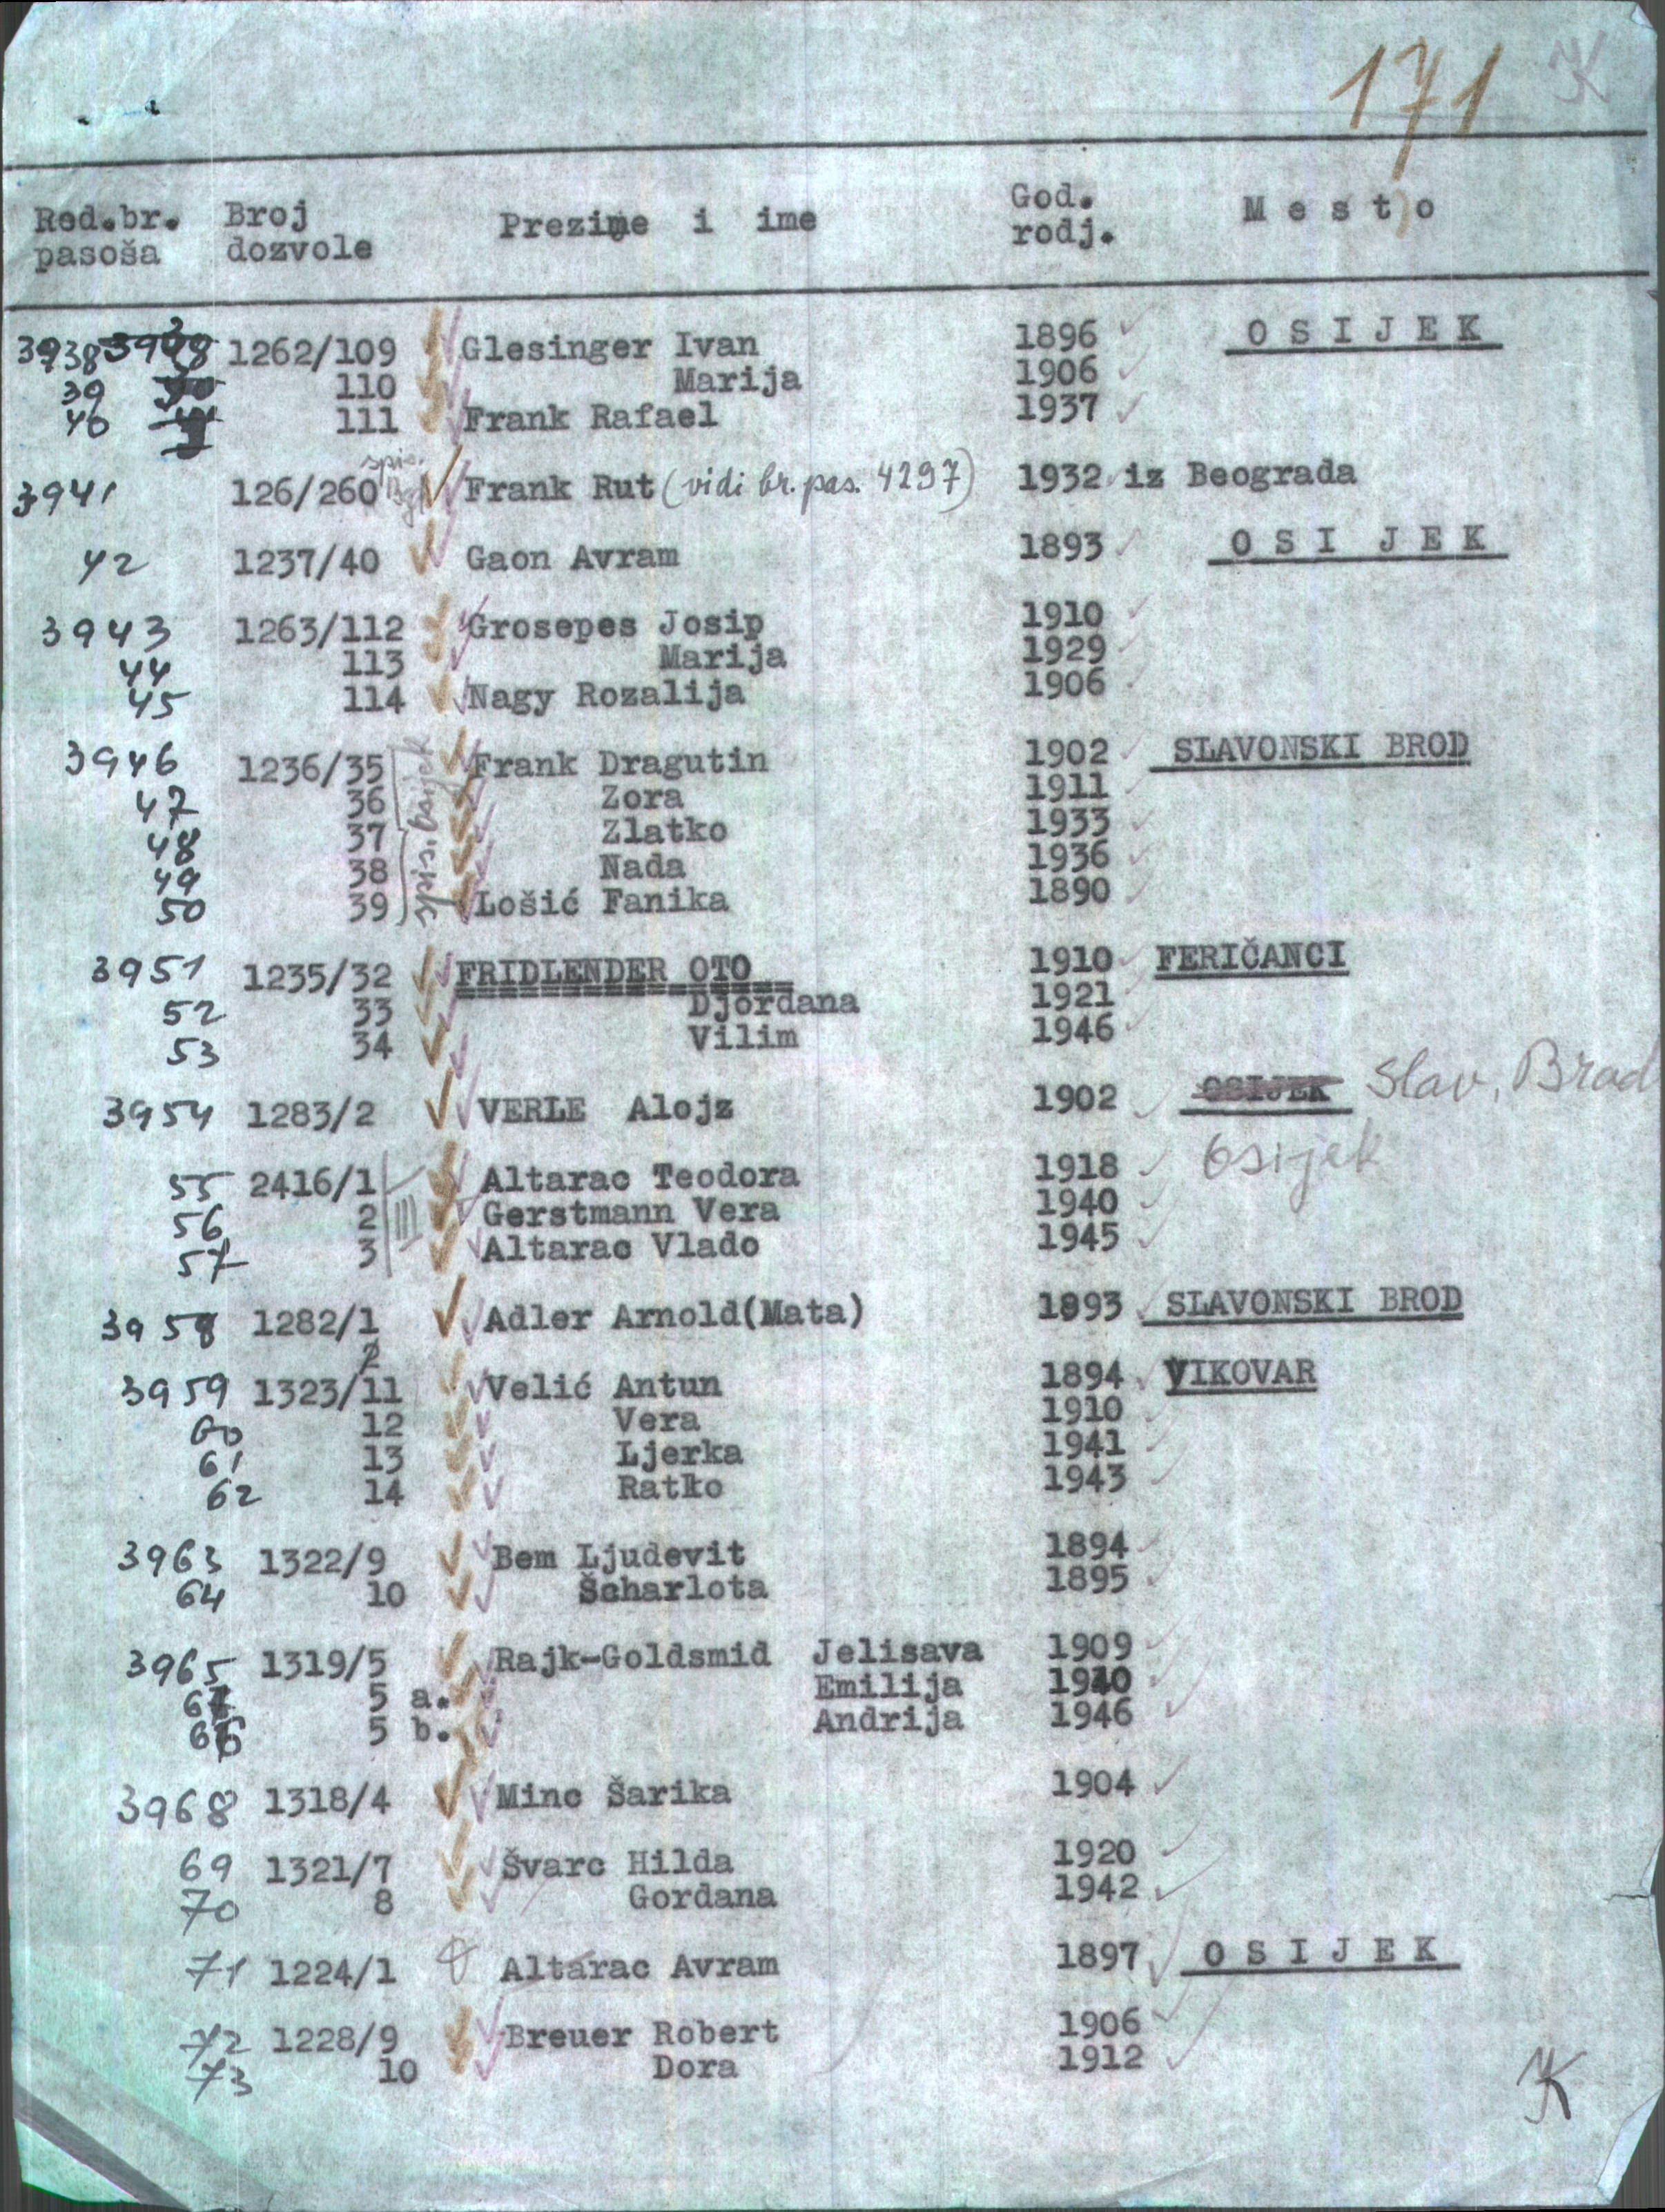 171 K
Red.br. Broj Prezime i ime God. M e s t o
pasoša dozvole rodj.
3938 1262/109 Glesinger Ivan 1896 O S I J E K
39 110 Marija 1906
40 111 Frank Rafael 1937
3941 126/260 Frank Rut (vidi br. pas. 4297) 1932 iz Beograda
42 1237/40 Gaon Avram 1893 O S I J E K
3943 1263/112 Grosepes Josip 1910
44 113 Marija 1929
45 114 Nagy Rozalija 1906
3946 1236/35 Frank Dragutin 1902 SLAVONSKI BROD
47 36 Zora 1911
48 37 Zlatko 1933
49 38 Nada 1936
50 39 Lošić Fanika 1890
3951 1235/32 FRIDLENDER OTO 1910 FERIČANCI
52 33 Djordana 1921
53 34 Vilim 1946
3954 1283/2 VERLE Alojz 1902 OSIJEK Slav. Brod
55 2416/1 Altarac Teodora 1918 Osijek
56 2 Gerstmann Vera 1940
57 3 Altarac Vlado 1945
III
3958 1282/1 Adler Arnold(Mata) 1893 SLAVONSKI BROD
2
3959 1323/11 Velić Antun 1894 VIKOVAR
60 12 Vera 1910
61 13 Ljerka 1941
62 14 Ratko 1943
3963 1322/9 Bem Ljudevit 1894
64 10 Šcharlota 1895
3965 1319/5 Rajk-Goldsmid Jelisava 1909
5 a. Emilija 1940
5 b. Andrija 1946
3968 1318/4 Minc Šarika 1904
69 1321/7 Švarc Hilda 1920
70 8 Gordana 1942
71 1224/1 Altarac Avram 1897 O S I J E K
72 1228/9 Breuer Robert 1906
73 10 Dora 1912
K